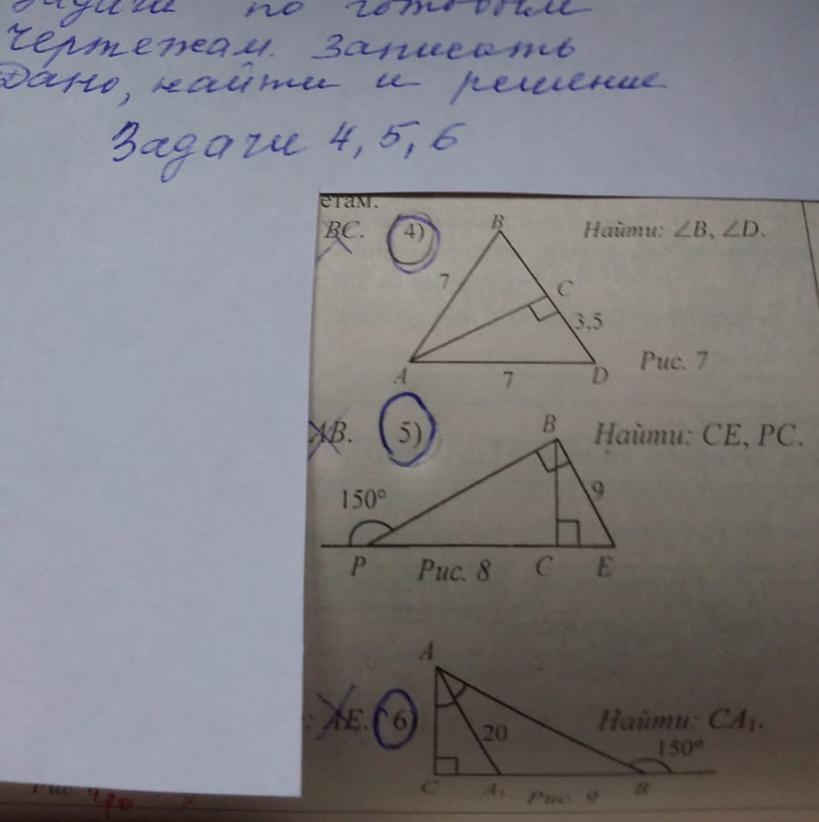 задачи по готовым
чертежам. Записать
Дано, найти и решение
Задачи 4, 5, 6
етам.
BC.
4)
B
Найти: ∠B, ∠D.
7
C
3,5
A
7
D
Рис. 7
AB.
5)
B
Найти: CE, PC.
150°
9
P
Рис. 8
C
E
A
: AE.
6)
20
Найти: CA₁.
150°
C
A₁
Рис. 9
B